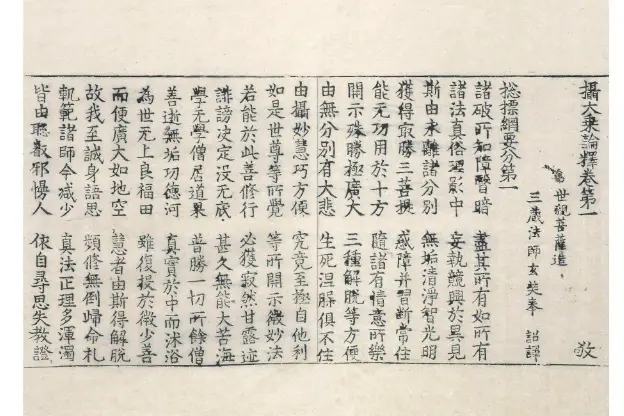 攝大乘論釋卷第一 敬
世親菩薩造
三藏法師玄奘奉 詔譯
捴摽綱要分第一
諸破所知障瞖暗 盡其所有如所有
諸法真俗理影中 妄執競興於異見
斯由永離諸分別 無垢清淨智光明
獲得冣勝三菩提 惑障并習斷常住
能无功用於十方 隨諸有情意所樂
開示殊勝極廣大 三種解脫等方便
由無分別有大悲 生死涅槃俱不住
由攝妙慧巧方便 究竟至極自他利
如是世尊等所覺 等所開示微妙法
若能於此善修行 必獲寂然甘露迹
誹謗決定沒无底 甚久無能大苦海
學无學僧居道果 普勝一切所餘僧
善逝無垢功德河 真實於中而沐浴
為世无上良福田 雖復投於微少善
而便廣大如地空 慧者由斯得解脫
故我至誠身語思 頻修無倒歸命礼
軌範諸師令減少 真法正理多渾濁
皆由聰叡邪慢人 依自尋思失教證